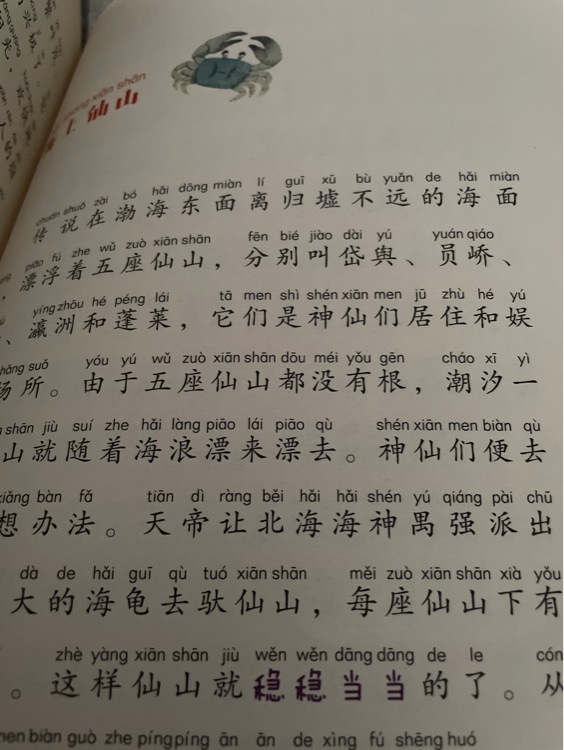 shàng xiān shān
上仙山
chuán shuō zài bó hǎi dōng miàn lí guī xū bù yuǎn de hǎi miàn
传说在渤海东面离归墟不远的海面
piāo fú zhe wǔ zuò xiān shān fēn bié jiào dài yú yuán qiáo
,漂浮着五座仙山,分别叫岱舆、员峤、
yíng zhōu hé péng lái tā men shì shén xiān men jū zhù hé yú
、瀛洲和蓬莱,它们是神仙们居住和娱
chǎng suǒ yóu yú wǔ zuò xiān shān dōu méi yǒu gēn cháo xī yì
场所。由于五座仙山都没有根,潮汐一
shān jiù suí zhe hǎi làng piāo lái piāo qù shén xiān men biàn qù
山就随着海浪漂来漂去。神仙们便去
xiǎng bàn fǎ tiān dì ràng běi hǎi hǎi shén yú qiáng pài chū
想办法。天帝让北海海神禺强派出
dà de hǎi guī qù tuó xiān shān měi zuò xiān shān xià yǒu
大的海龟去驮仙山,每座仙山下有
zhè yàng xiān shān jiù wěn wěn dāng dāng de le cón
。这样仙山就稳稳当当的了。从
men biàn guò zhe píng píng ān ān de xìng fú shēng huó